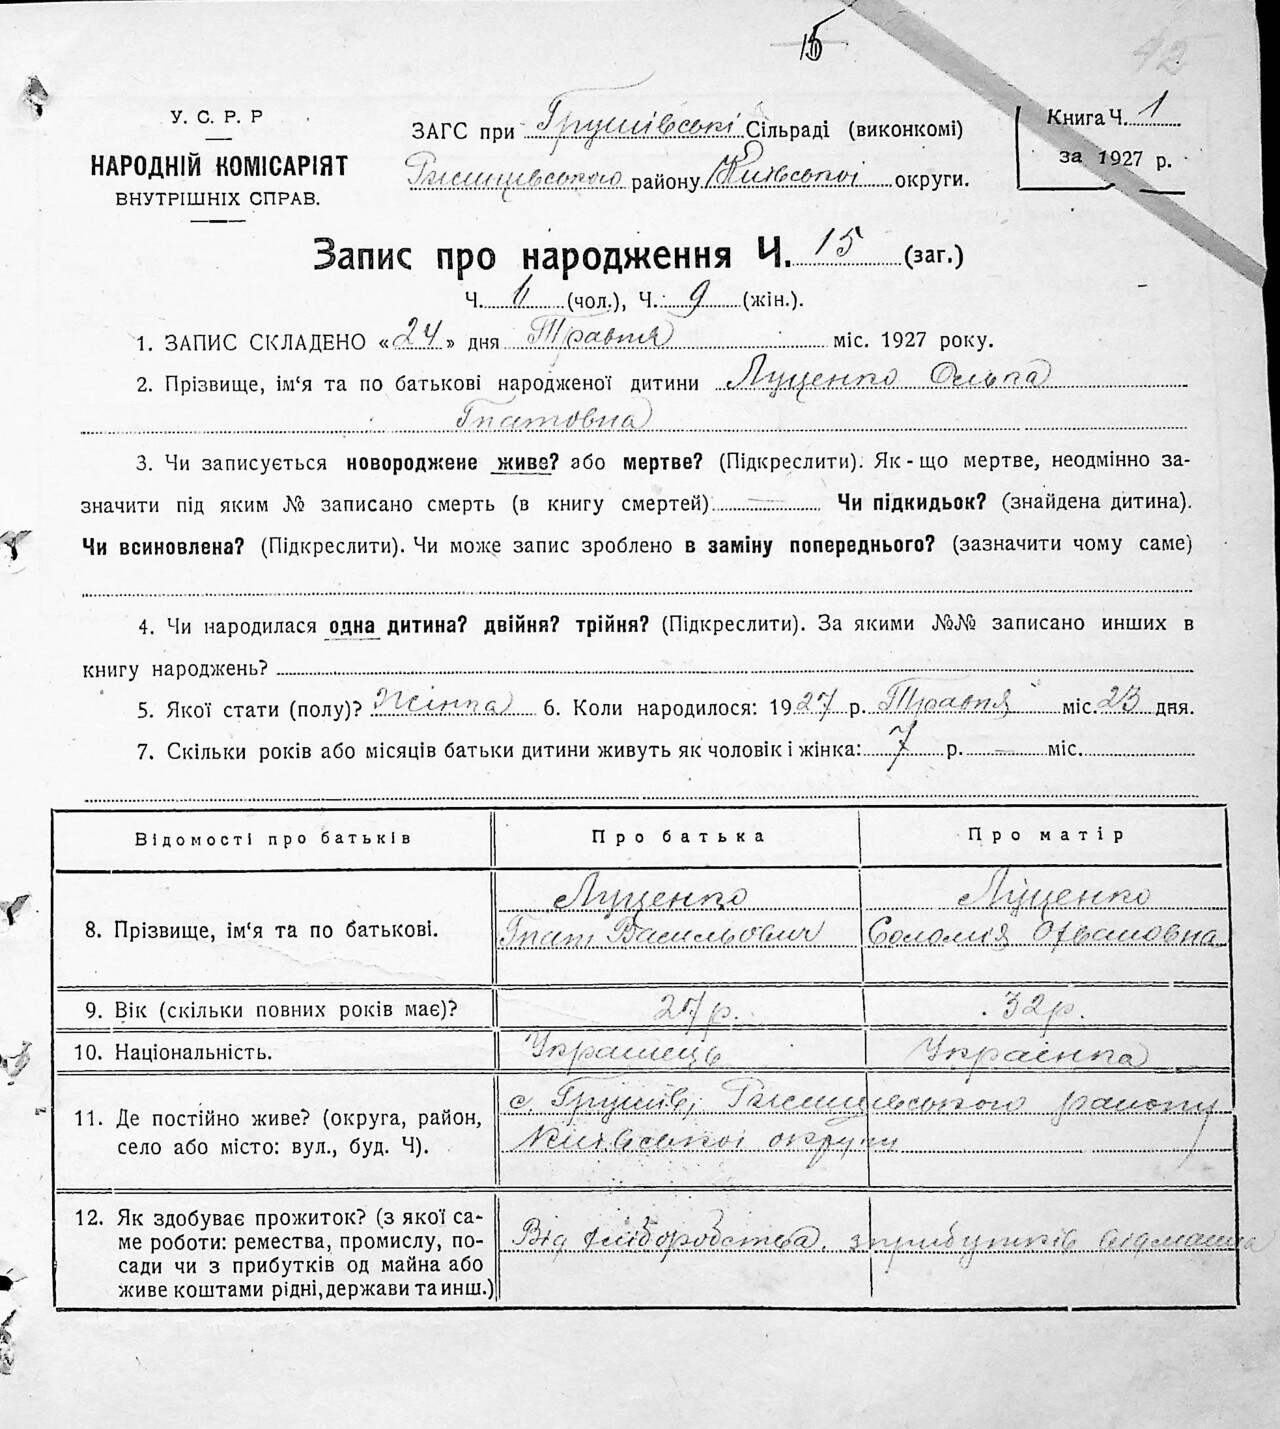 15
42
У. С. Р. Р
НАРОДНІЙ КОМІСАРІЯТ
ВНУТРІШНІХ СПРАВ.
ЗАГС при Грушівські Сільраді (виконкомі)
Ржищівського району Київської округи.
Книга Ч. 1
за 1927 р.
Запис про народження Ч. 15 (заг.)
Ч. 6 (чол.), Ч. 9 (жін.).
1. ЗАПИС СКЛАДЕНО «24» дня Травня міс. 1927 року.
2. Прізвище, ім‘я та по батькові народженої дитини Луценко Олька
Гнатовна
3. Чи записується новороджене живе? або мертве? (Підкреслити). Як-що мертве, неодмінно за-
значити під яким № записано смерть (в книгу смертей) — Чи підкидьок? (знайдена дитина).
Чи всиновлена? (Підкреслити). Чи може запис зроблено в заміну попереднього? (зазначити чому саме)
4. Чи народилася одна дитина? двійня? трійня? (Підкреслити). За якими №№ записано инших в
книгу народжень?
5. Якої стати (полу)? Жінка 6. Коли народилося: 1927 р. Травня міс. 23 дня.
7. Скільки років або місяців батьки дитини живуть як чоловік і жінка: 7 р. — міс.
Відомості про батьків Про батька Про матір
8. Прізвище, ім‘я та по батькові.
Луценко Луценко
Гнат Васильович Соломія
9. Вік (скільки повних років має)? 27 р. 32 р.
10. Національність. Украінець Украінка
11. Де постійно живе? (округа, район,
село або місто: вул., буд. Ч).
с. Грушів, Ржищівського району
Київськоі округи
12. Як здобуває прожиток? (з якої са-
ме роботи: ремества, промислу, по-
сади чи з прибутків од майна або
живе коштами рідні, держави та инш.)
Від хліборобства. з прибутків від майна